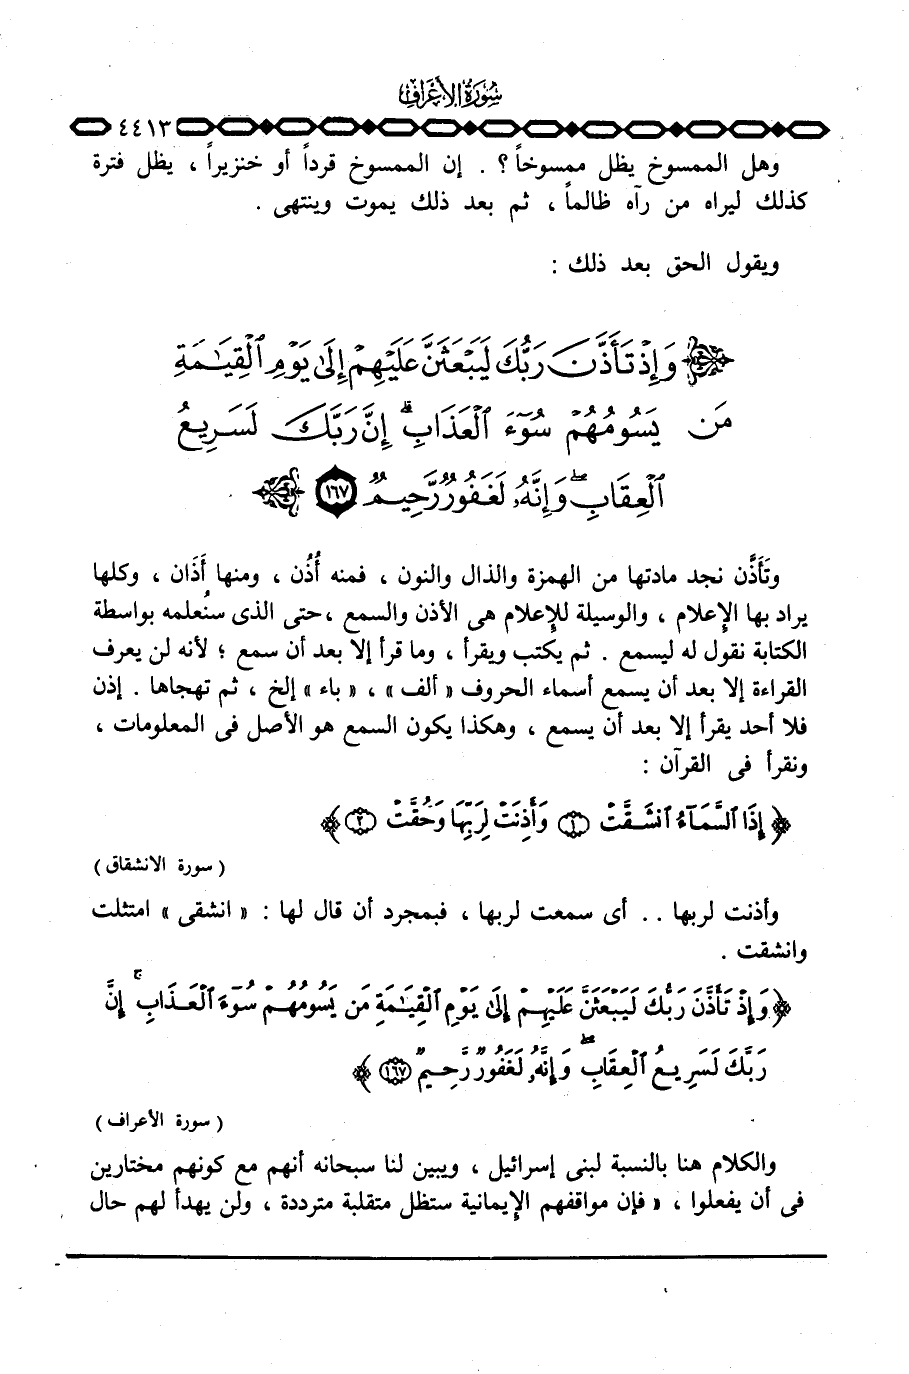 سُورَةُ الأَعْرَافِ
٤٤١٣
وهل الممسوخ يظل ممسوخاً ؟ . إن الممسوخ قرداً أو خنزيراً ، يظل فترة
كذلك ليراه من رآه ظالماً ، ثم بعد ذلك يموت وينتهى .
ويقول الحق بعد ذلك :
وَإِذْ تَأَذَّنَ رَبُّكَ لَيَبْعَثَنَّ عَلَيْهِمْ إِلَىٰ يَوْمِ ٱلْقِيَـٰمَةِ
مَن يَسُومُهُمْ سُوٓءَ ٱلْعَذَابِ ۗ إِنَّ رَبَّكَ لَسَرِيعُ
ٱلْعِقَابِ ۖ وَإِنَّهُۥ لَغَفُورٌ رَّحِيمٌ ١٦٧
وتَأَذَّن نجد مادتها من الهمزة والذال والنون ، فمنه أُذُن ، ومنها أَذَان ، وكلها
يراد بها الإِعلام ، والوسيلة للإِعلام هى الأذن والسمع ، حتى الذى سنُعلمه بواسطة
الكتابة نقول له ليسمع . ثم يكتب ويقرأ ، وما قرأ إلا بعد أن سمع ؛ لأنه لن يعرف
القراءة إلا بعد أن يسمع أسماء الحروف « ألف » ، « باء » إلخ ، ثم تهجاها . إذن
فلا أحد يقرأ إلا بعد أن يسمع ، وهكذا يكون السمع هو الأصل فى المعلومات ،
ونقرأ فى القرآن :
﴿ إِذَا ٱلسَّمَآءُ ٱنشَقَّتْ ١ وَأَذِنَتْ لِرَبِّهَا وَحُقَّتْ ٢ ﴾
( سورة الانشقاق )
وأذنت لربها . . أى سمعت لربها ، فبمجرد أن قال لها : « انشقى » امتثلت
وانشقت .
﴿ وَإِذْ تَأَذَّنَ رَبُّكَ لَيَبْعَثَنَّ عَلَيْهِمْ إِلَىٰ يَوْمِ ٱلْقِيَـٰمَةِ مَن يَسُومُهُمْ سُوٓءَ ٱلْعَذَابِ ۚ إِنَّ
رَبَّكَ لَسَرِيعُ ٱلْعِقَابِ ۖ وَإِنَّهُۥ لَغَفُورٌ رَّحِيمٌ ١٦٧ ﴾
( سورة الأعراف )
والكلام هنا بالنسبة لبنى إسرائيل ، ويبين لنا سبحانه أنهم مع كونهم مختارين
فى أن يفعلوا ، « فإن مواقفهم الإيمانية ستظل متقلبة مترددة ، ولن يهدأ لهم حال